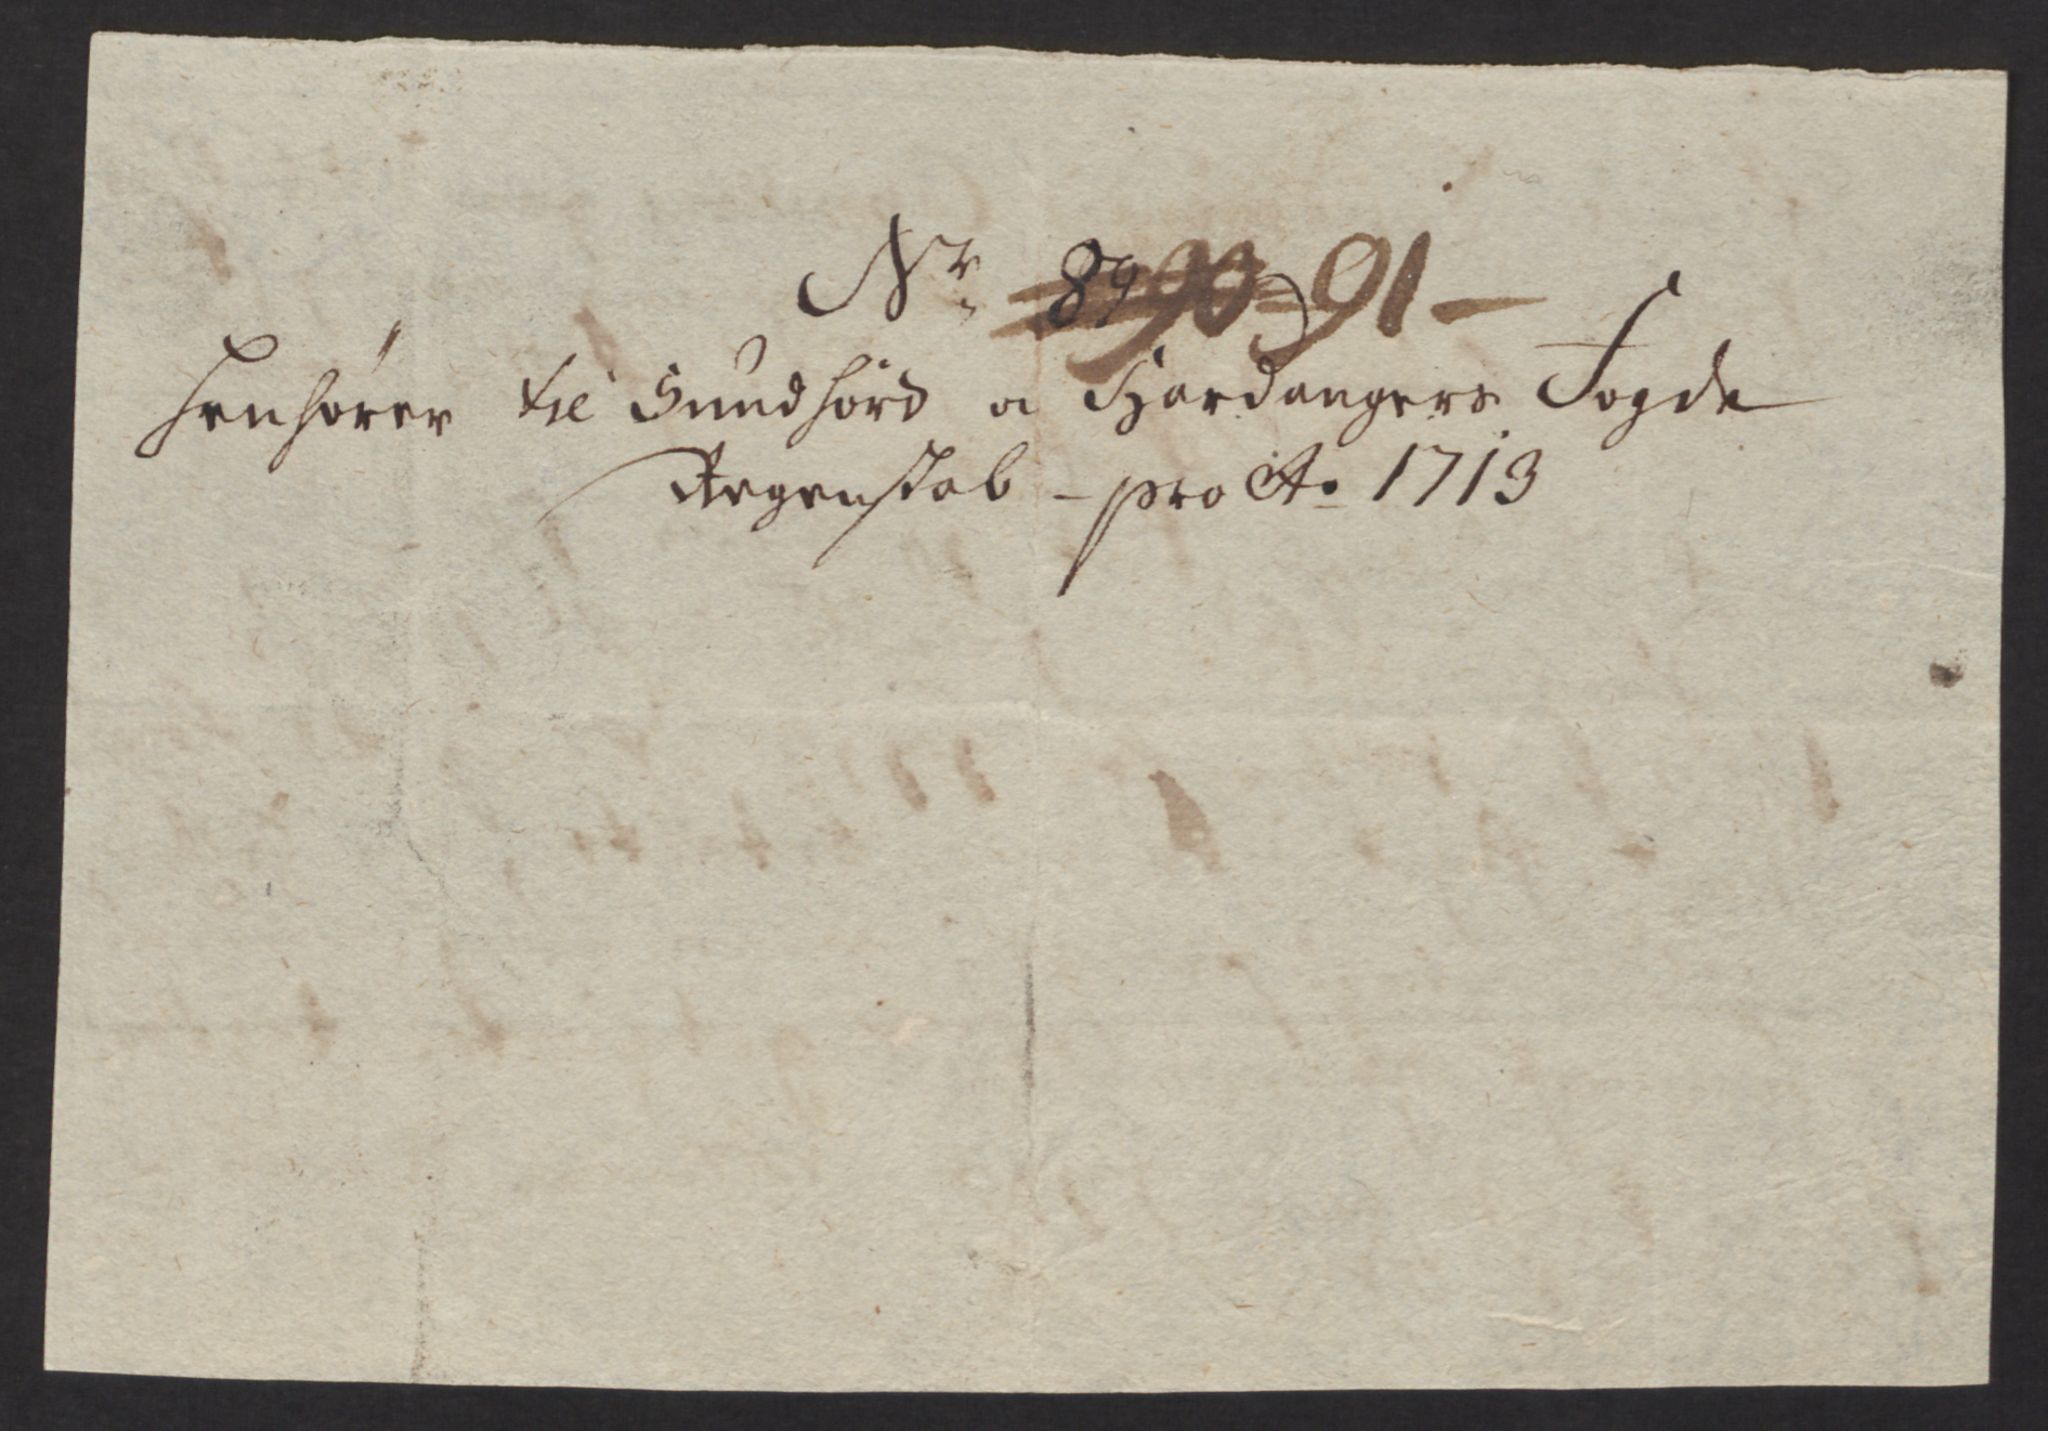 Nr 89 90 91 -
Henhører til Sundhörd o Hardangers Fogde
Regenskab - pro Ao 1713